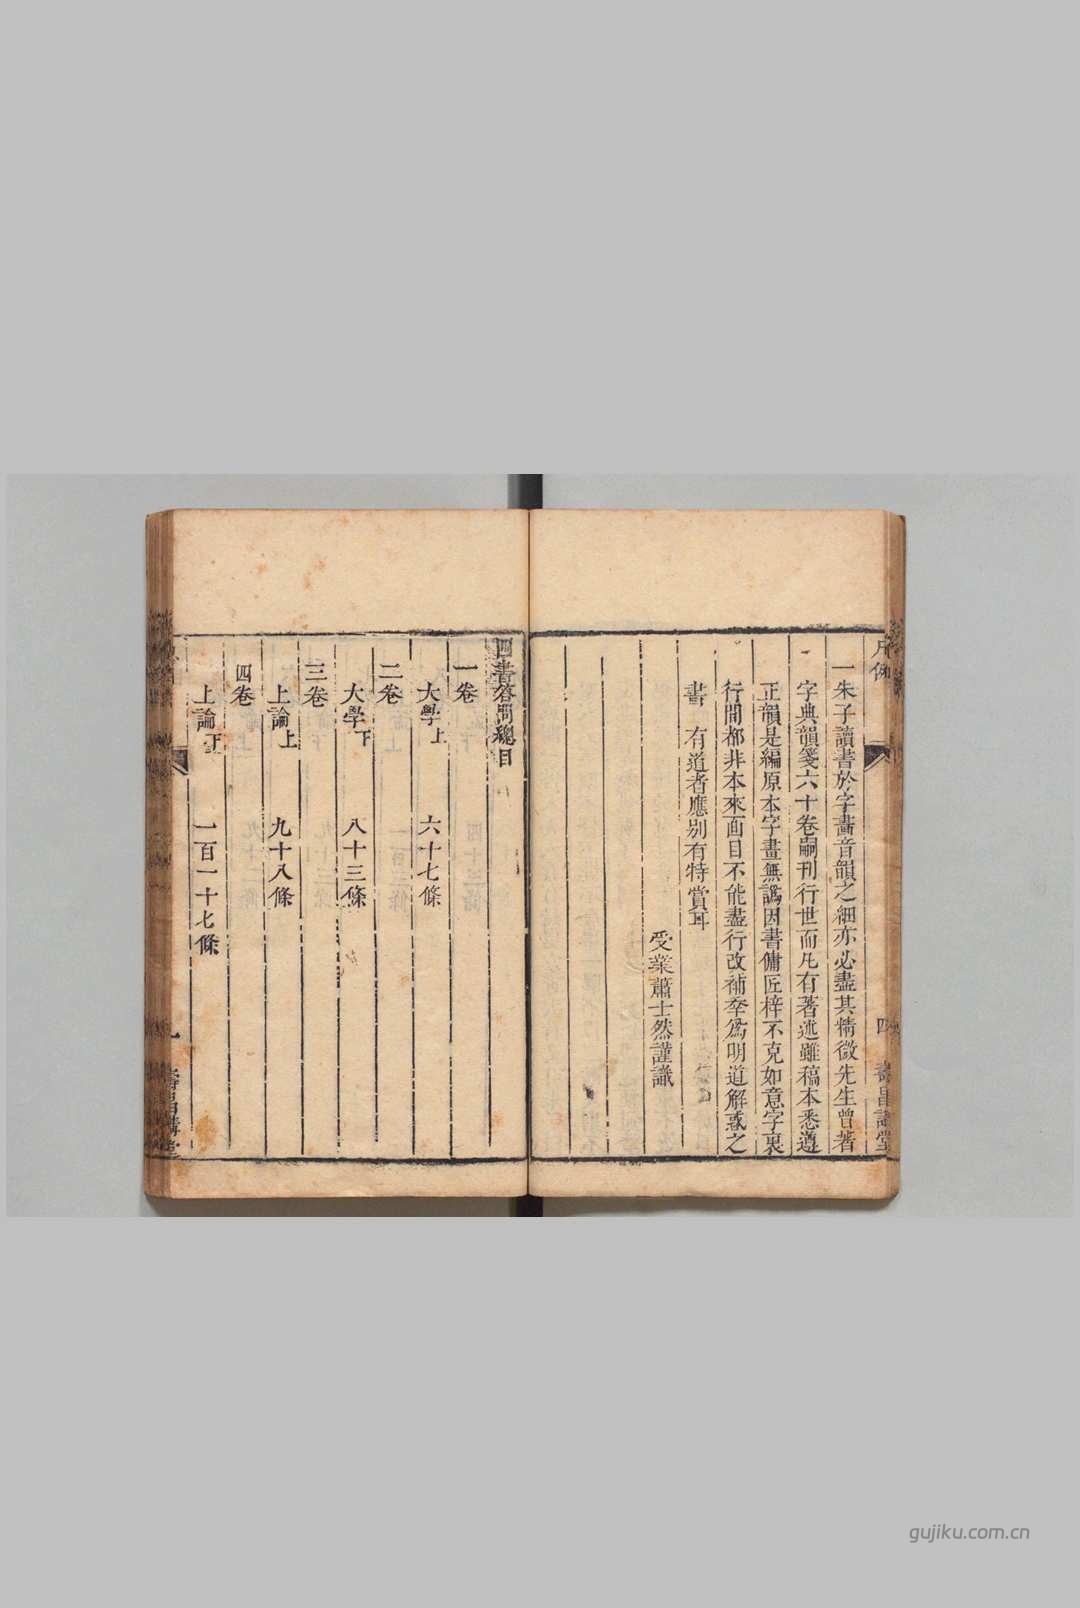 凡例
一朱子讀書於字畫音韻之細亦必盡其精微先生曾著
字典韻箋六十卷嗣刊行世而凡有著述雖稿本悉遵
正韻是編原本字畫無譌因書傭匠梓不克如意字裏
行間都非本來面目不能盡行改補幸為明道解惑之
書　有道者應別有特賞耳
受業蕭士然謹識
四
壽昌講堂
四書答問總目
一卷
大學上　六十七條
二卷
大學下　八十三條
三卷
上論上　九十八條
四卷
上論下　一百一十七條
壽昌講堂
gujiku.com.cn